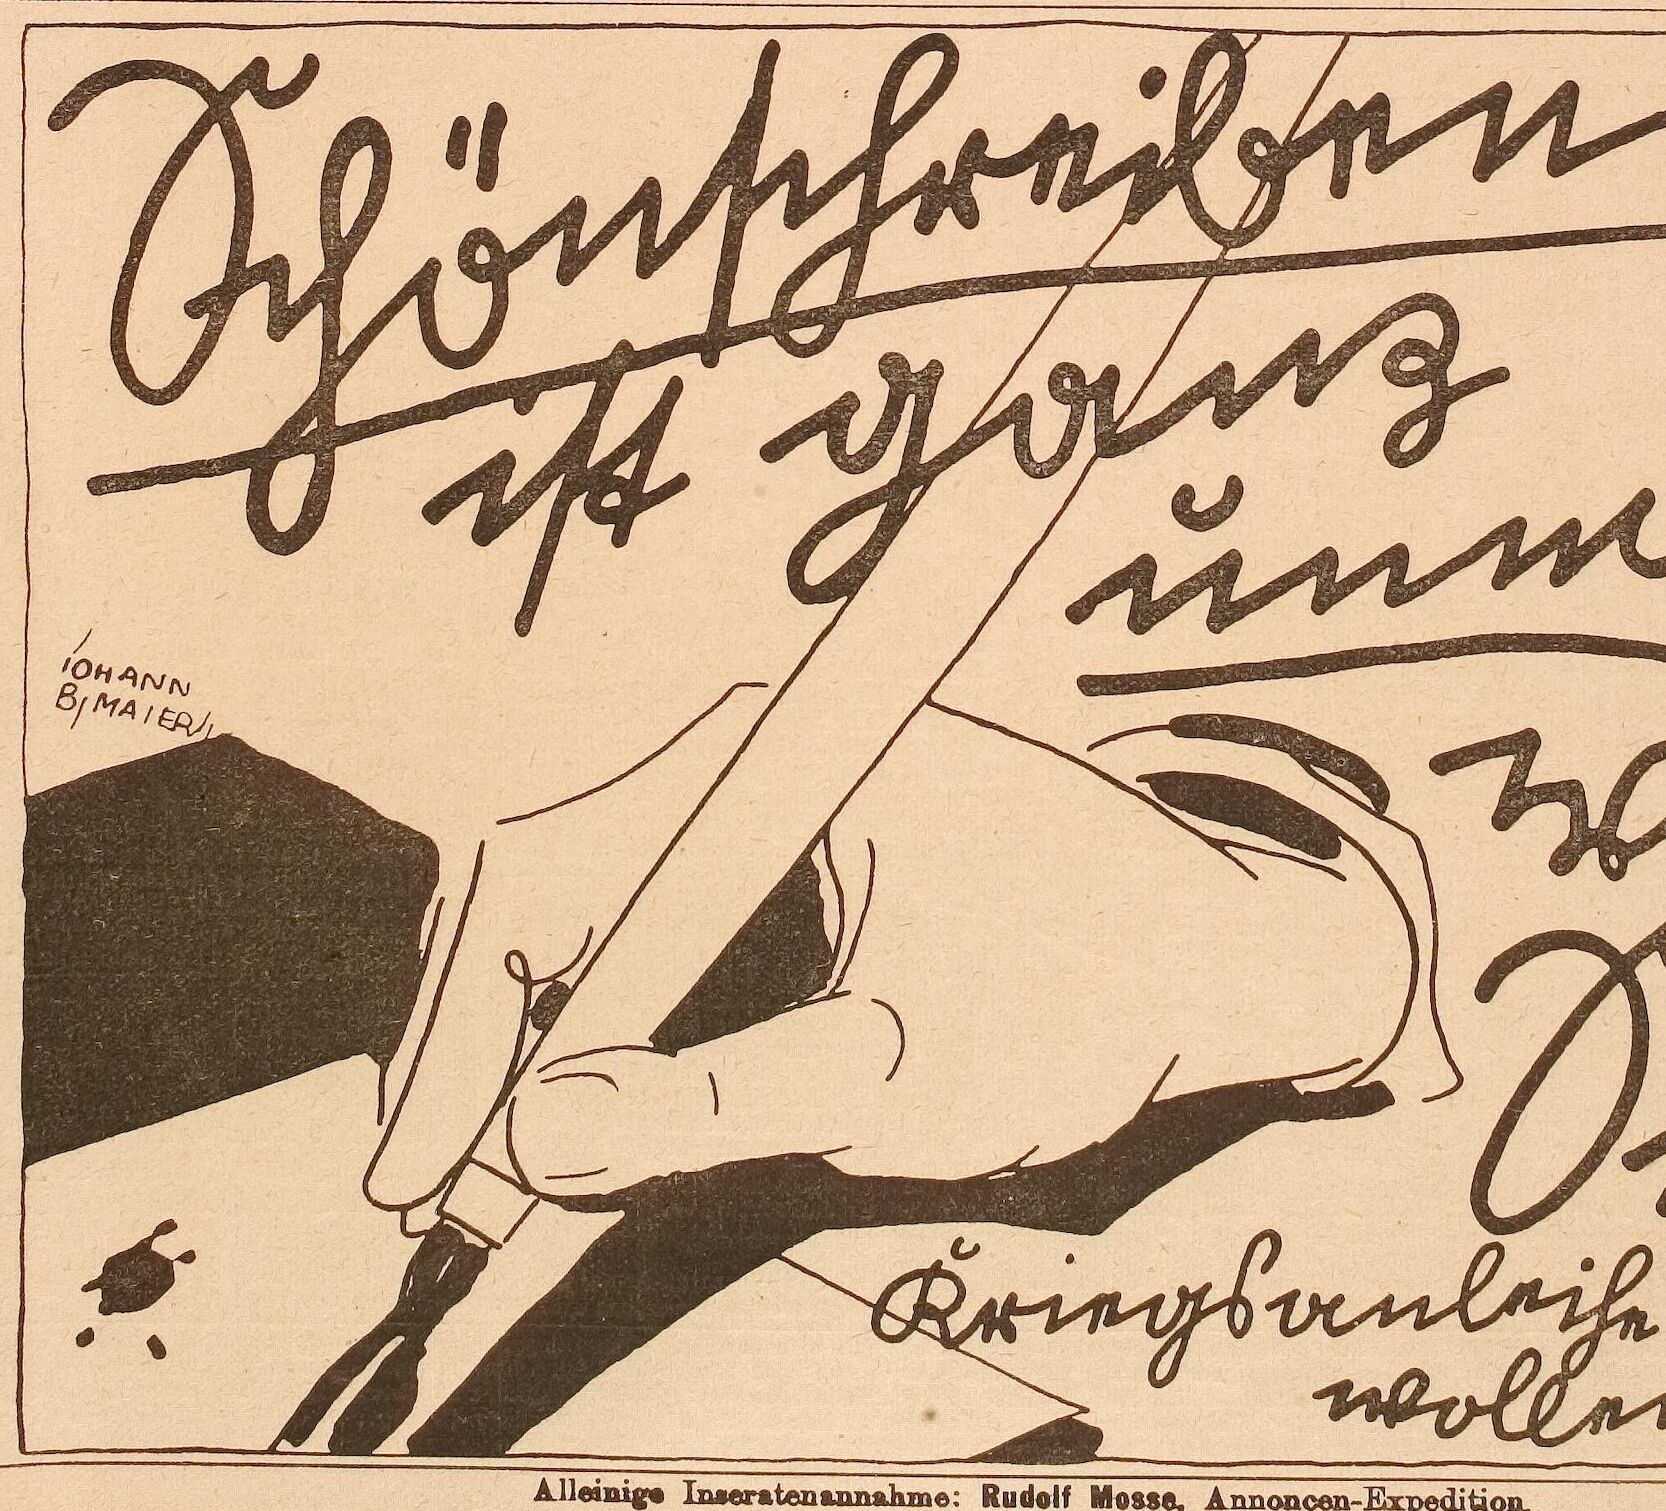 Schönschreiben
ist ganz
unw
w
JOHANN
B. MAIER
Kriegsanleihe
wollen
Alleinige Inseratenannahme: Rudolf Mosse, Annoncen-Expedition